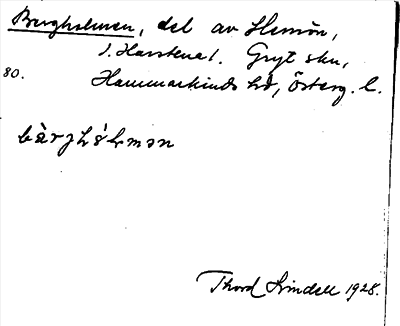 Bergholmen, del av Hemön,
i. Harstena l. Gryt skn,
80. Hammarkinds hd, Österg. l.
bàrjhólmən
Thord Lindell 1928.